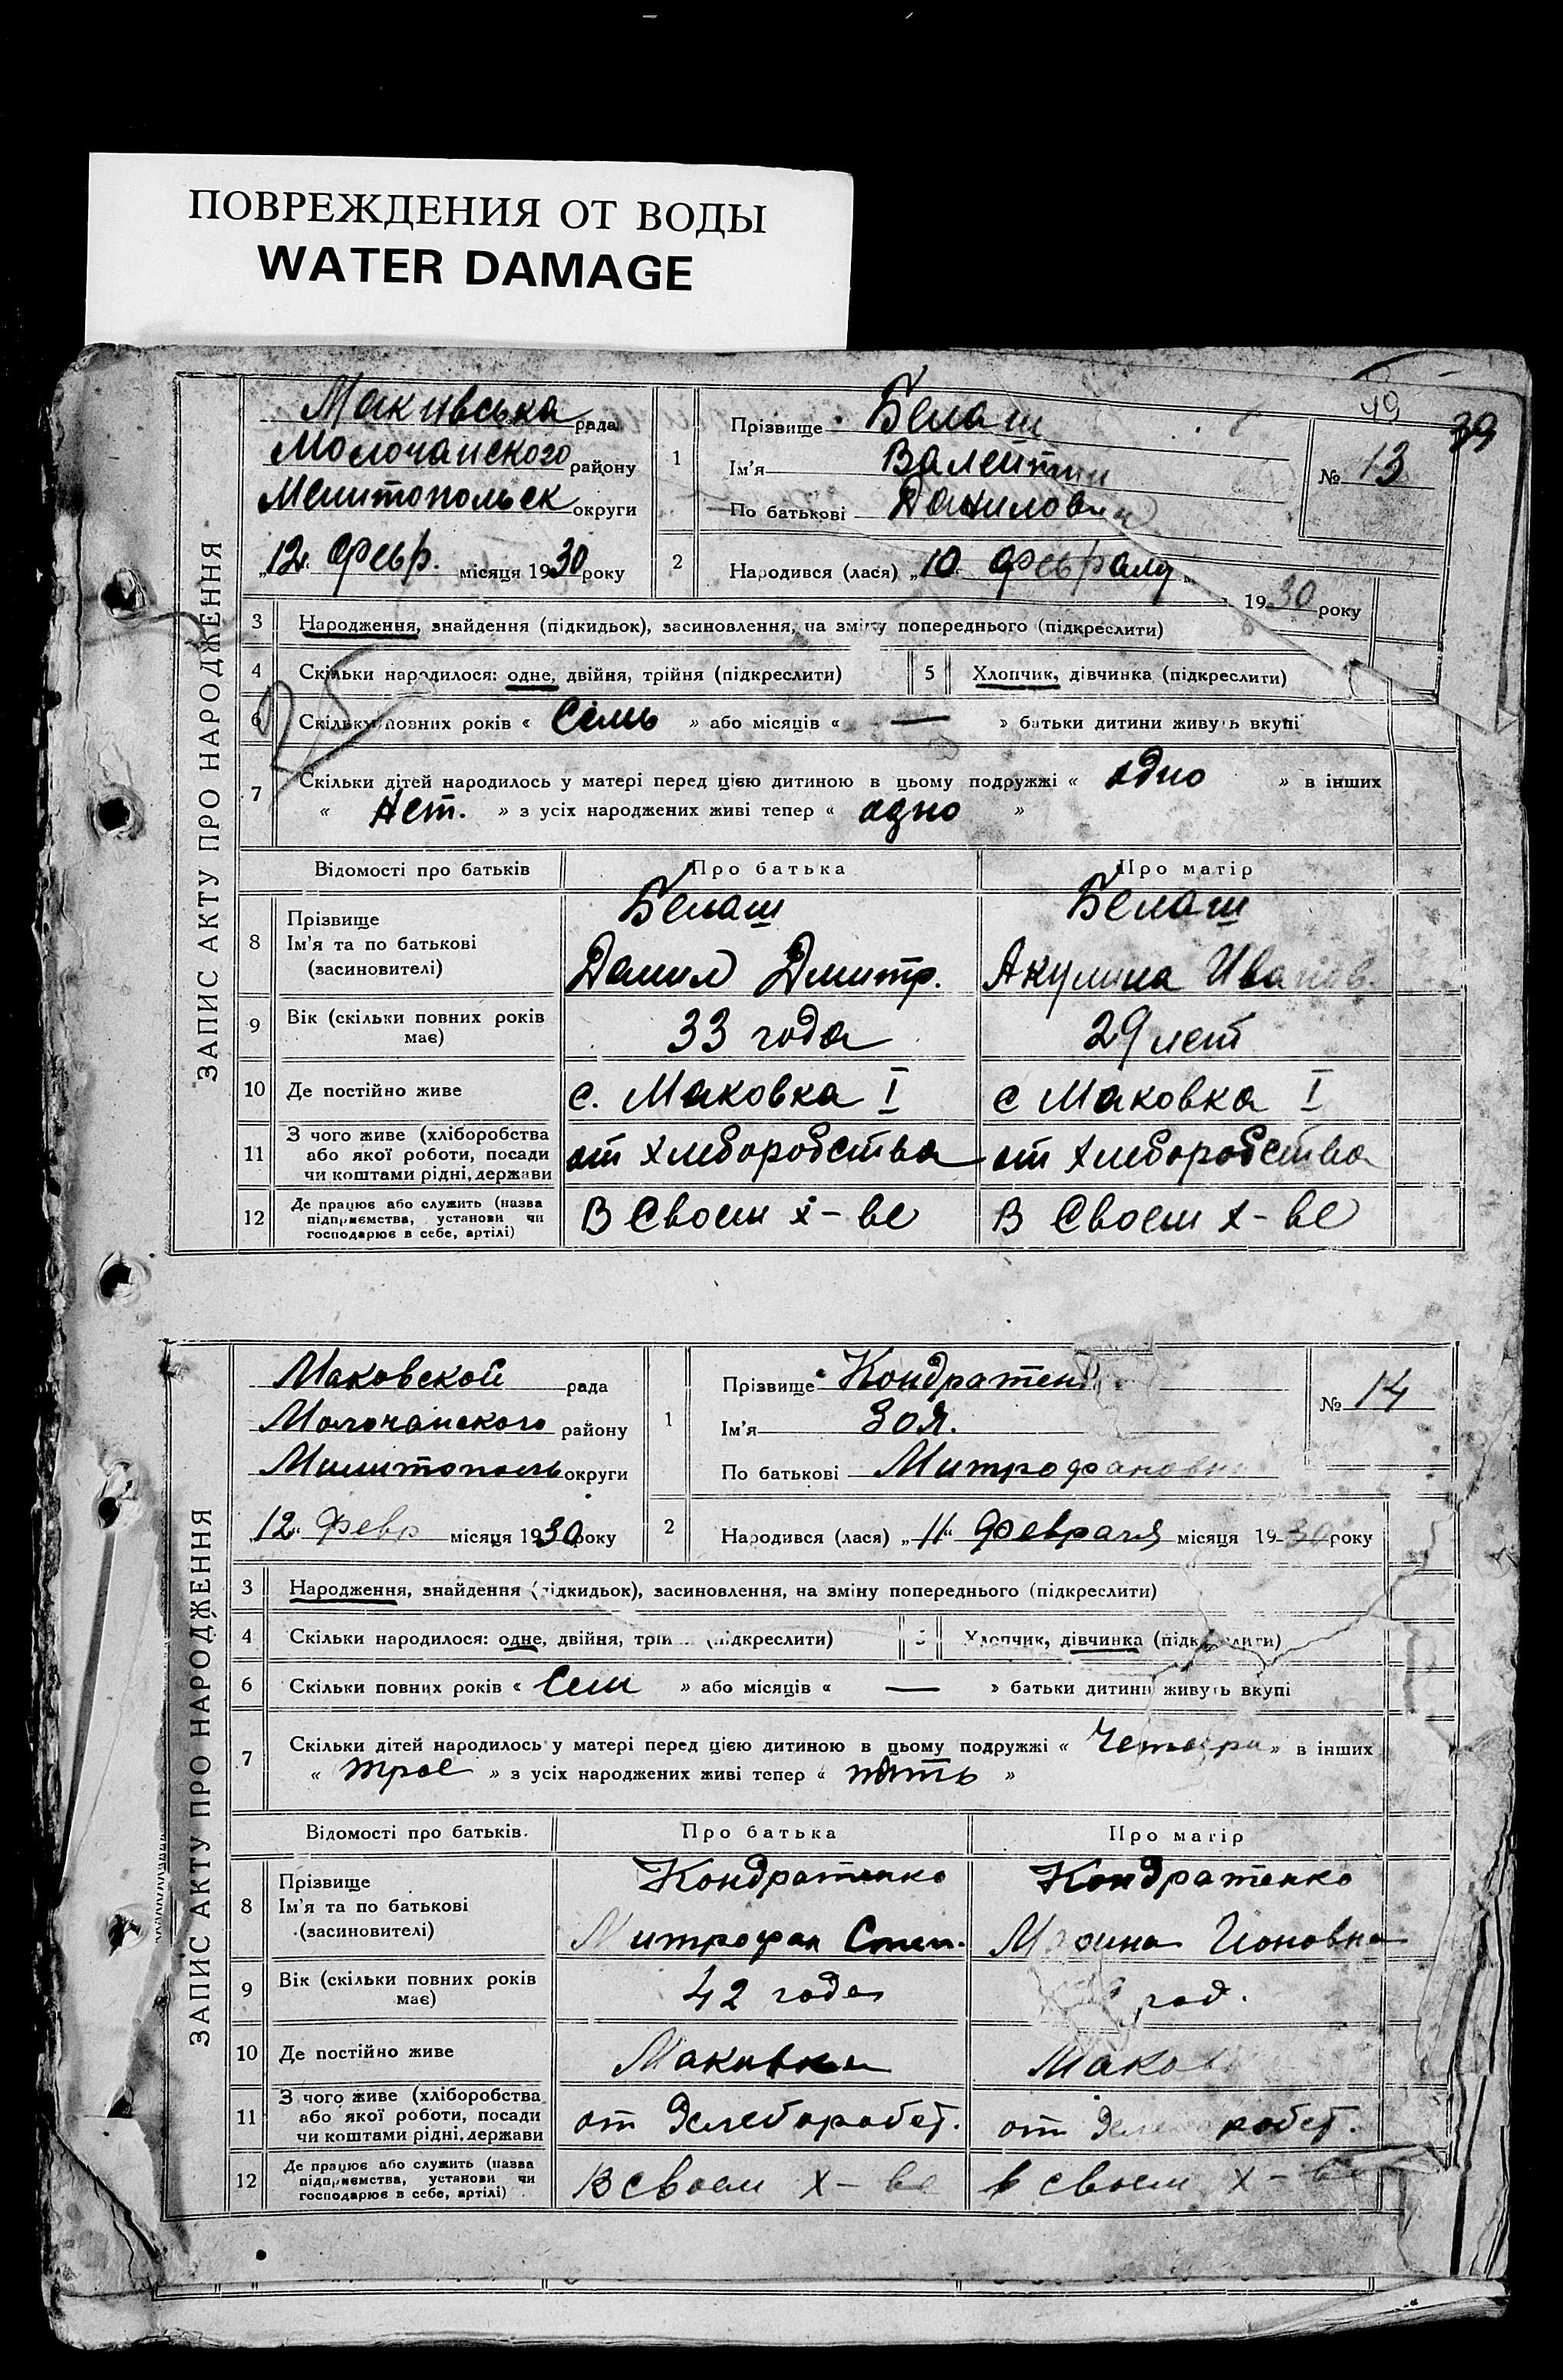 ПОВРЕЖДЕНИЯ ОТ ВОДЫ
WATER DAMAGE
49
39
ЗАПИС АКТУ ПРО НАРОДЖЕННЯ
Маківська рада
Молочанского району
Мелитопольск округи
„12“ февр. місяця 1930 року
1
Прізвище Белаш
Ім'я Валентин
По батькові Данилович
№ 13
2
Народився (лася) „10“ февраля
1930 року
3 Народження, знайдення (підкидьок), засиновлення, на зміну попереднього (підкреслити)
4 Скільки народилося: одне, двійня, трійня (підкреслити) 5 Хлопчик, дівчинка (підкреслити)
6 Скільки повних років « Семь » або місяців « — » батьки дитини живуть вкупі
7 Скільки дітей народилось у матері перед цією дитиною в цьому подружжі « одно » в інших
« Нет. » з усіх народжених живі тепер « одно »
Відомості про батьків Про батька Про матір
8 Прізвище Белаш Белаш
Ім'я та по батькові
(засиновителі) Данил Дмитр. Акулина Иванов.
9 Вік (скільки повних років має) 33 года 29 лет
10 Де постійно живе с. Маковка I с Маковка I
11 З чого живе (хліборобства
або якої роботи, посади от хлеборобства от хлеборобства
чи коштами рідні, держави
12 Де працює або служить (назва
підприємства, установи чи В своем х-ве В своем х-ве
господарює в себе, артілі)
ЗАПИС АКТУ ПРО НАРОДЖЕННЯ
Маковской рада
Молочанского району
Милитополь округи
„12“ февр місяця 1930 року
1
Прізвище Кондратен
Ім'я Зоя.
По батькові Митрофановн
№ 14
2
Народився (лася) „11“ февраля місяця 1930 року
3 Народження, знайдення (підкидьок), засиновлення, на зміну попереднього (підкреслити)
4 Скільки народилося: одне, двійня, трій (підкреслити) Хлопчик, дівчинка (підкреслити)
6 Скільки повних років « Сем » або місяців « — » батьки дитини живуть вкупі
7 Скільки дітей народилось у матері перед цією дитиною в цьому подружжі « Четыри » в інших
« трое » з усіх народжених живі тепер « пять »
Відомості про батьків. Про батька Про матір
8 Прізвище Кондратенко Кондратенко
Ім'я та по батькові
(засиновителі) Митрофан Степ. Марина Ионовна
9 Вік (скільки повних років має) 42 года год.
10 Де постійно живе Маковка Мако
11 З чого живе (хліборобства
або якої роботи, посади от хлеборобст. от робст.
чи коштами рідні, держави
12 Де працює або служить (назва
підприємства, установи чи В своем х-ве в своем х-ве
господарює в себе, артілі)